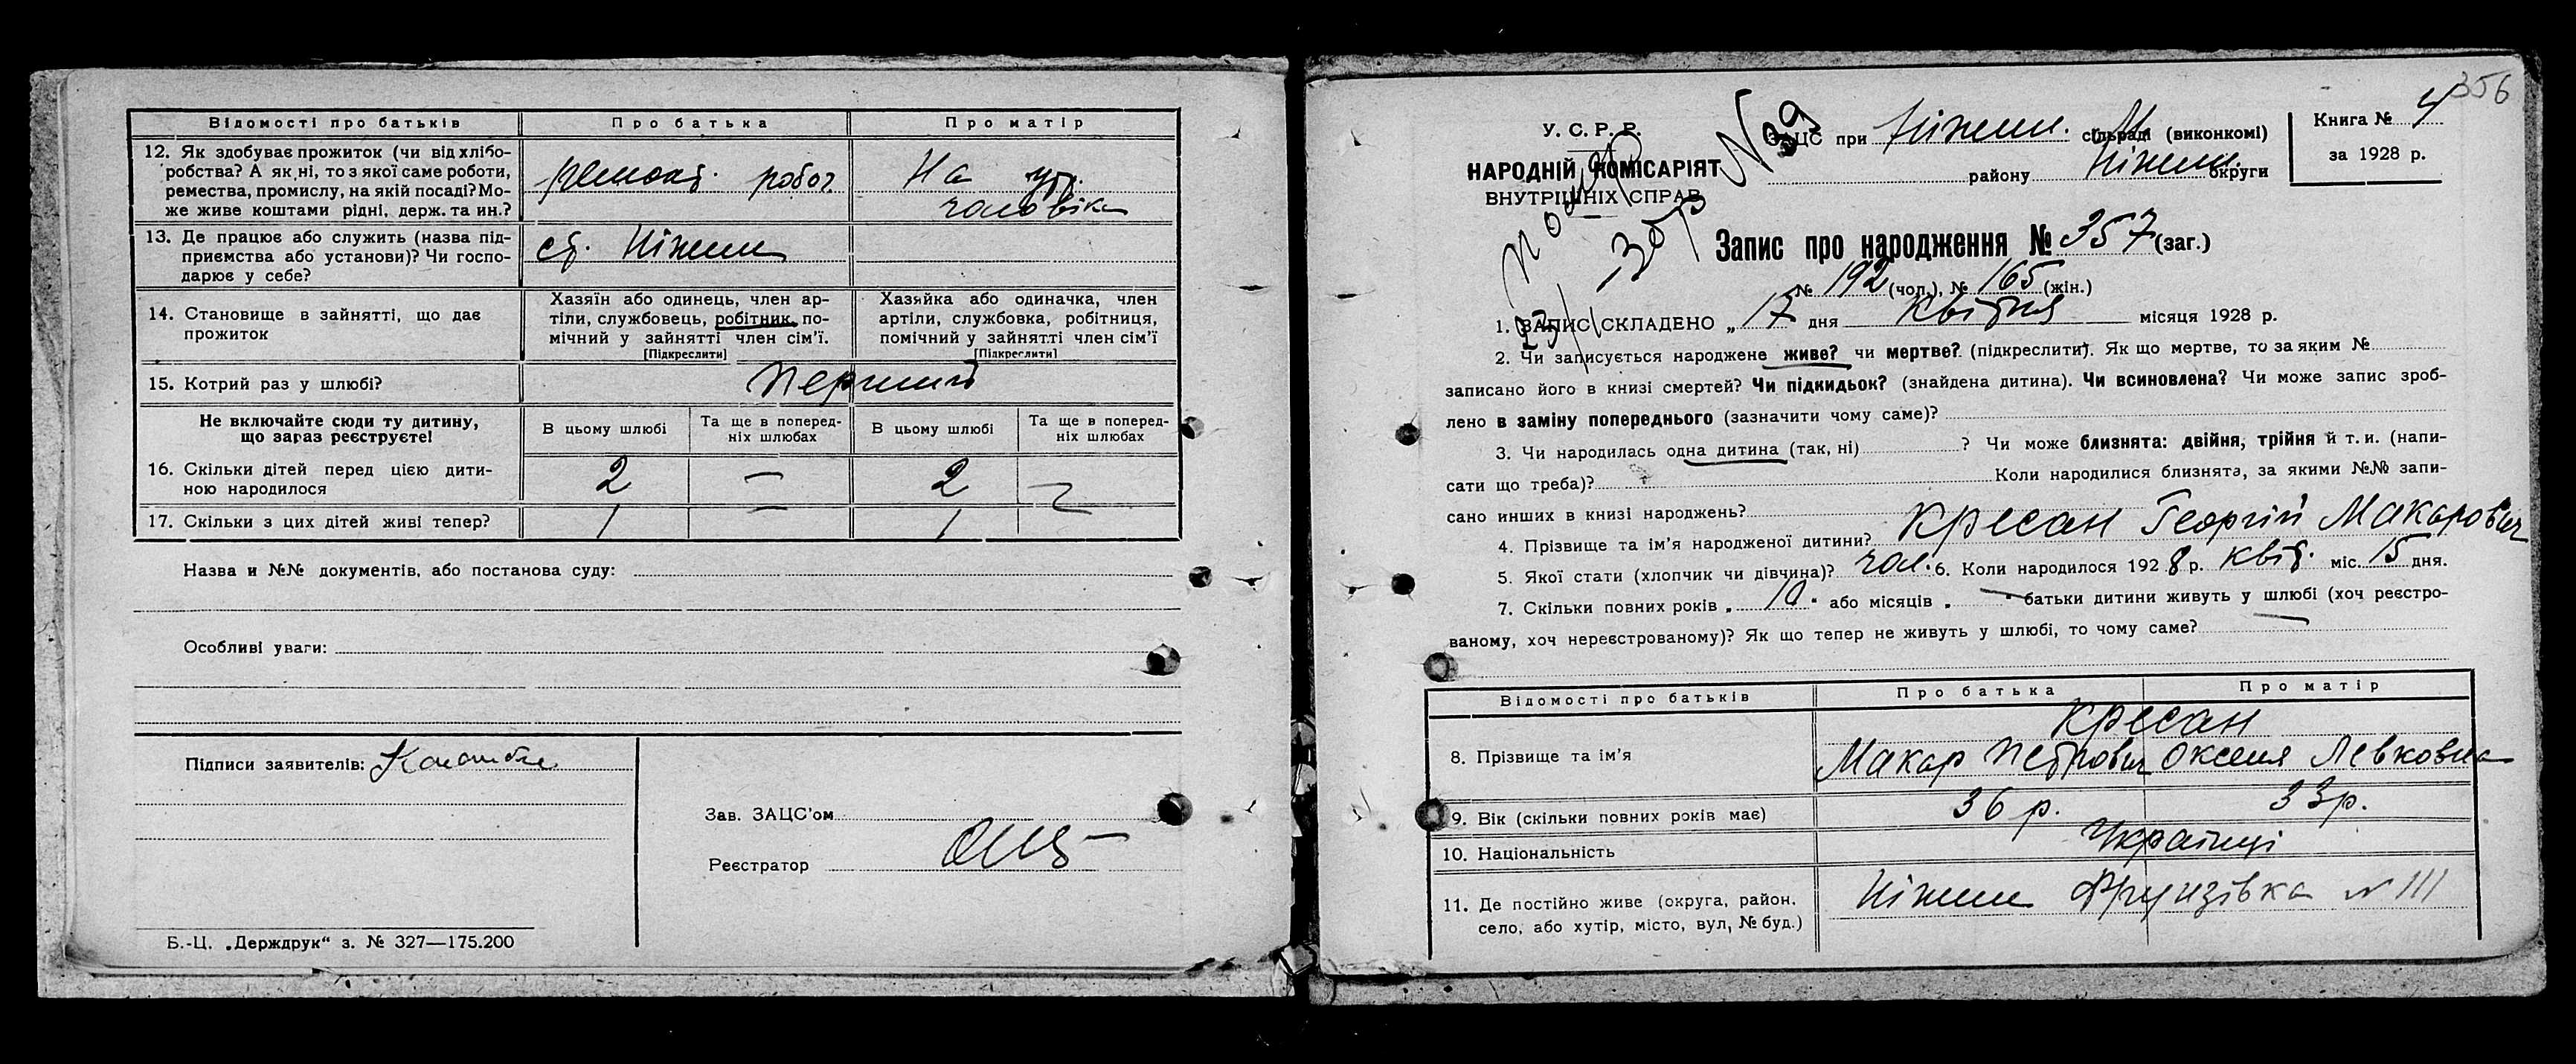 Відомості про батьків Про батька Про матір
12. Як здобуває прожиток (чи від хлібо-
робства? А як ні, то з якої саме роботи,
ремества, промислу, на якій посаді? Мо-
же живе коштами рідні, держ. та ин.?
ремонт. робоч.
На утр.
чоловіка
13. Де працює або служить (назва під-
приємства або установи)? Чи госпо-
дарює у себе?
ст. Ніжин
14. Становище в зайнятті, що дає
прожиток
Хазяїн або одинець, член ар-
тіли, службовець, робітник, по-
мічний у зайнятті член сім'ї.
[Підкреслити]
Хазяйка або одиначка, член
артіли, службовка, робітниця,
помічний у зайнятті член сім'ї
[Підкреслити]
15. Котрий раз у шлюбі? Перший
Не включайте сюди ту дитину,
що зараз реєструєте!
В цьому шлюбі
Та ще в поперед-
ніх шлюбах
В цьому шлюбі
Та ще в поперед-
ніх шлюбах
16. Скільки дітей перед цією дити-
ною народилося
2 — 2 —
17. Скільки з цих дітей живі тепер? 1 — 1 —
Назва и №№ документів, або постанова суду:
Особливі уваги:
Підписи заявителів:
Зав. ЗАЦС'ом
Реєстратор
Б.-Ц. „Держдрук“ з. № 327—175.200
356
У. С. Р. Р.
НАРОДНІЙ КОМІСАРІЯТ
ВНУТРІШНІХ СПРАВ
N 39
ЗАЦС при Ніжин. сільраді (виконкомі)
району Ніжин. округи
Книга № 4
за 1928 р.
Запис про народження № 357 (заг.)
№ 192 (чол.), № 165 (жін.)
1. ЗАПИС СКЛАДЕНО „17 дня Квітня місяця 1928 р.
2. Чи записується народжене живе? чи мертве? (підкреслити). Як що мертве, то за яким №
записано його в книзі смертей? Чи підкидьок? (знайдена дитина). Чи всиновлена? Чи може запис зроб-
лено в заміну попереднього (зазначити чому саме)?
3. Чи народилась одна дитина (так, ні) ? Чи може близнята: двійня, трійня й т. и. (напи-
сати що треба)? Коли народилися близнята, за якими №№ запи-
сано инших в книзі народжень?
4. Прізвище та ім'я народженої дитини? Кресан Георгій Макарович
5. Якої стати (хлопчик чи дівчина)? чол. 6. Коли народилося 1928 р. квіт. міс. 15 дня.
7. Скільки повних років „ 10 “ або місяців „ — “ батьки дитини живуть у шлюбі (хоч реєстро-
ваному, хоч нереєстрованому)? Як що тепер не живуть у шлюбі, то чому саме? —
Відомості про батьків Про батька Про матір
Кресан
8. Прізвище та ім'я Макар Петрович Оксеня Левковна
9. Вік (скільки повних років має) 36 р. 33 р.
10. Національність Українці
11. Де постійно живе (округа, район,
село, або хутір, місто, вул, № буд.)
Ніжин Фрунзівка N 111